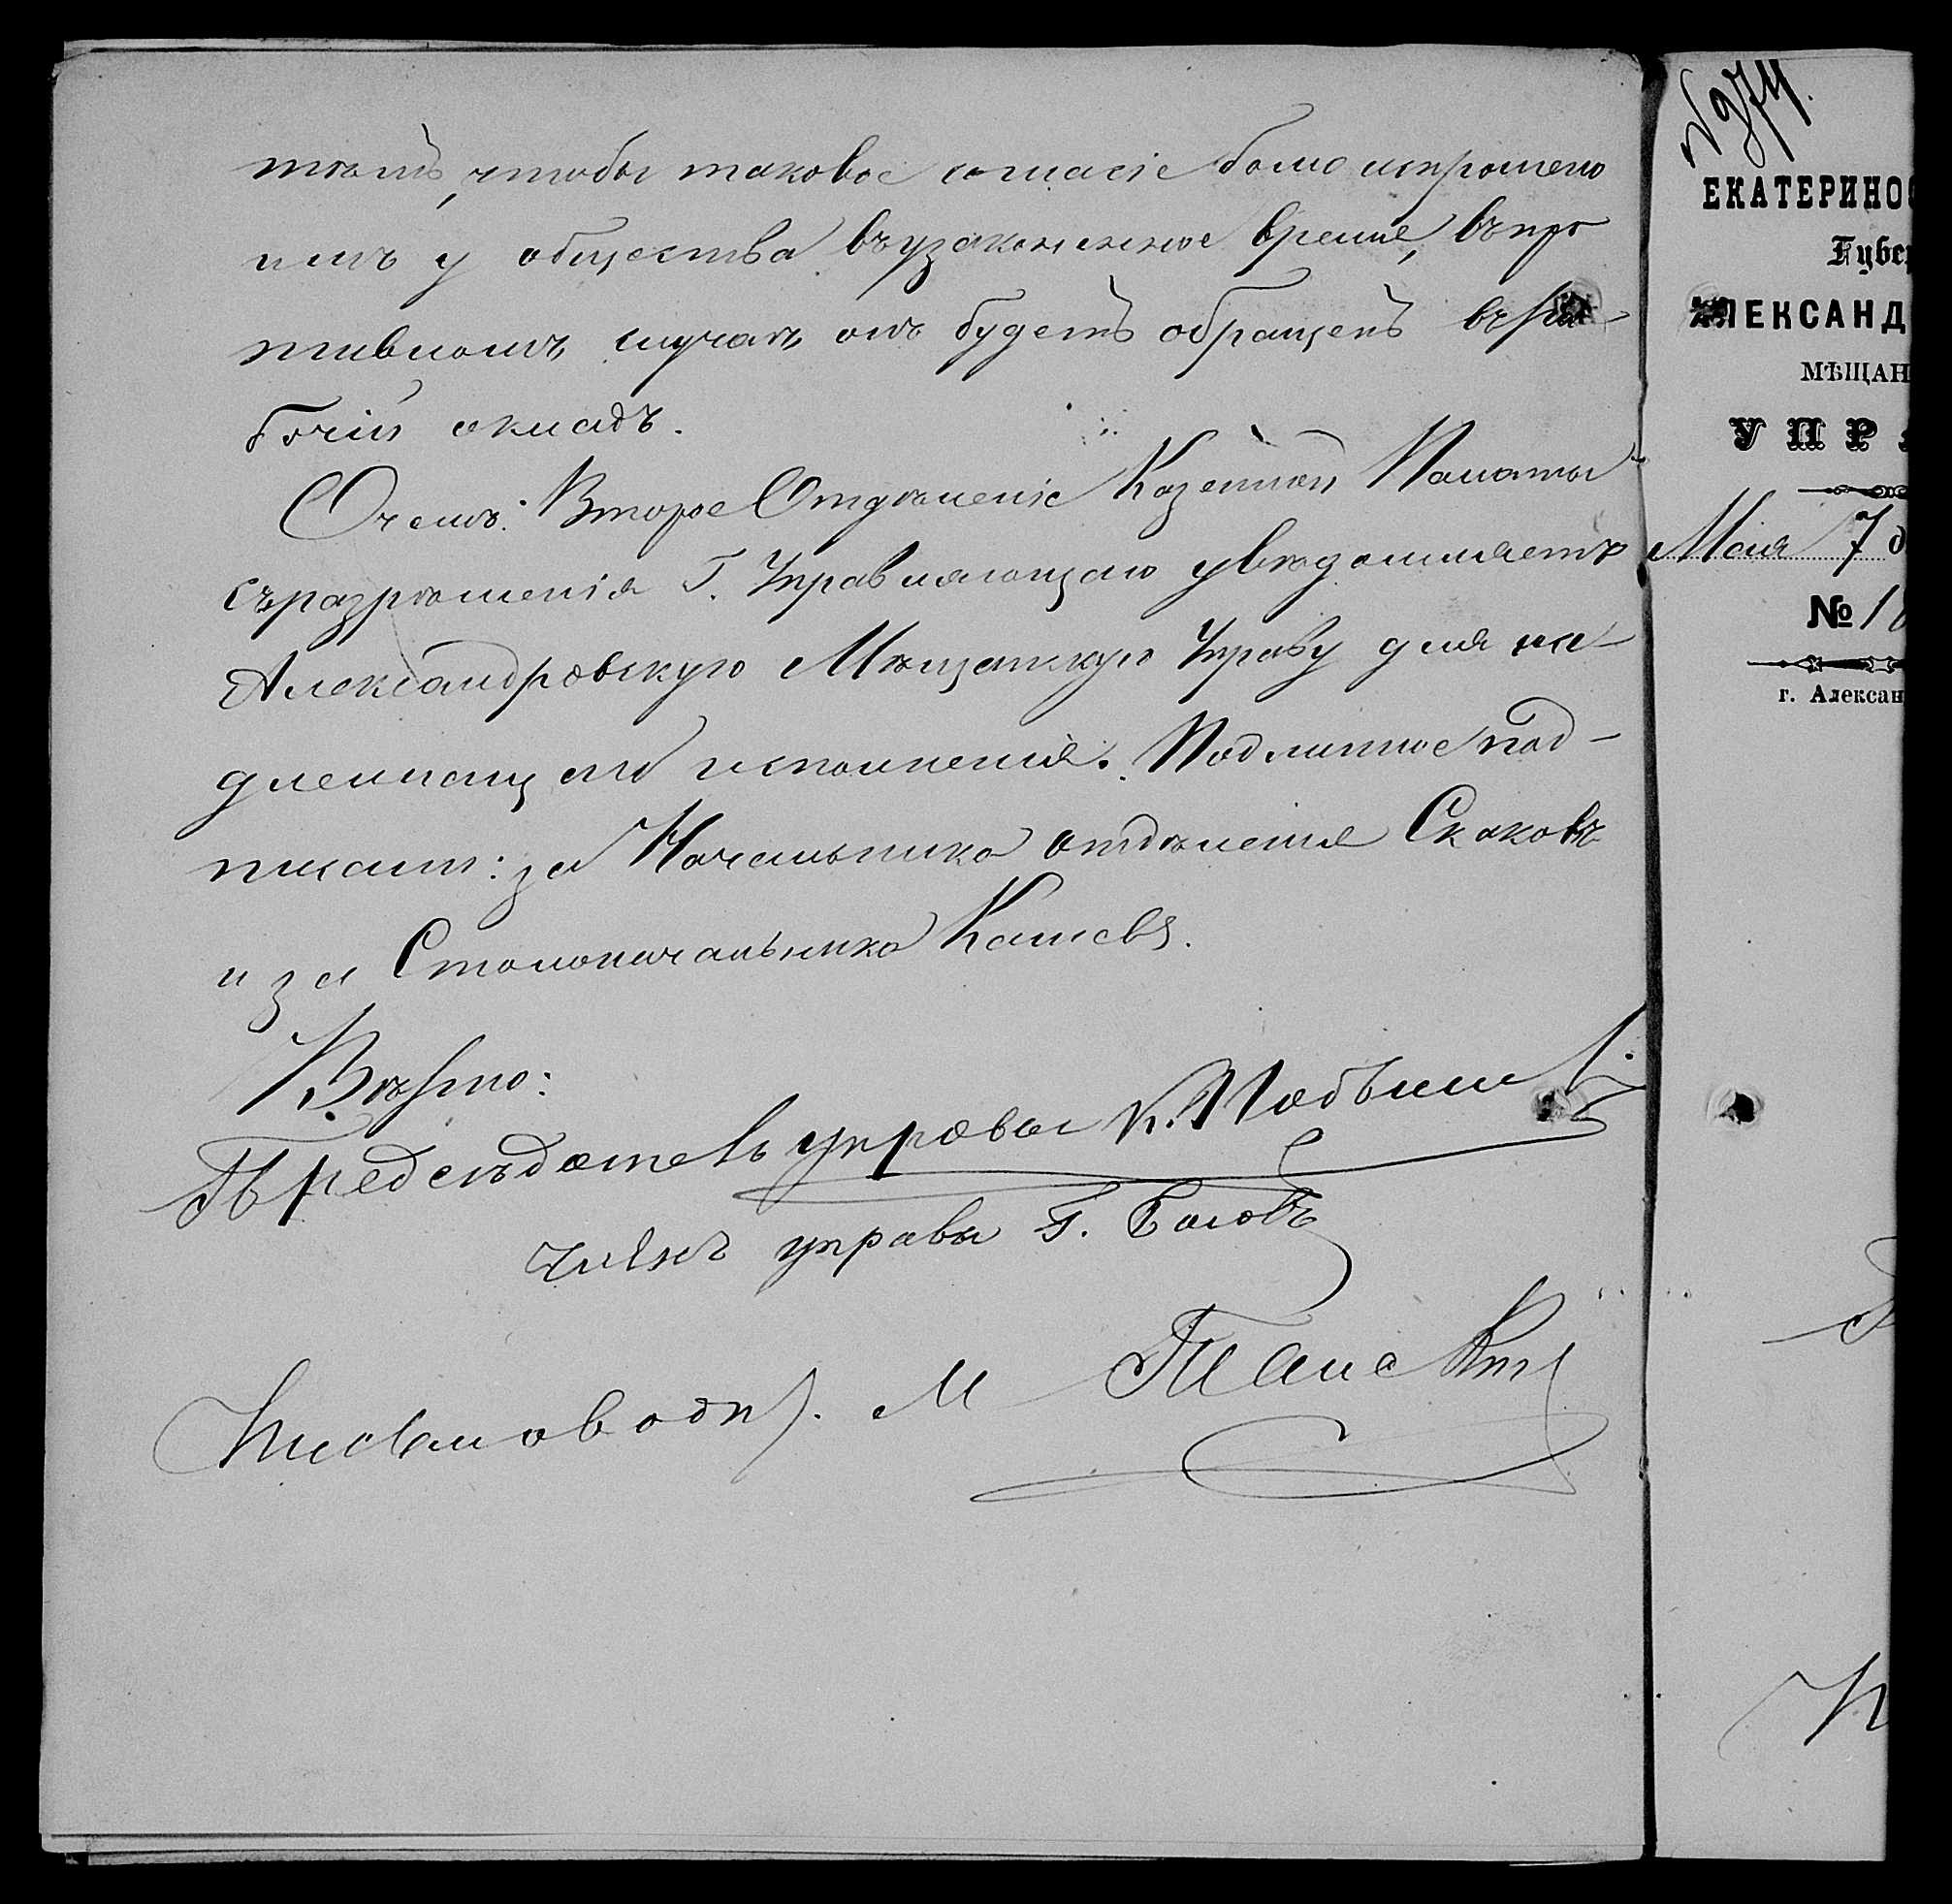 тѣмъ, чтобы таковое согласіе было испрошено
имъ у общества въ узаконенное время, въ про
тивномъ случаѣ онъ будетъ обращенъ въ ра-
бочій окладъ.
О чемъ Второе Отдѣленіе Казенной Палаты
съ разрѣшенія Г. Управляющаго увѣдомляетъ
Александровскую Мѣщанскую Управу для на-
длежащаго исполненія. Подлинное под-
писали: за Начальника отдѣленія Скаковъ
и за Столоначальника
Вѣрно:
Предсѣдатель управы К.
Членъ управы Г.
Письмоводит. М
№ 974.
ЕКАТЕРИНОС
Губер
АЛЕКСАНД
МѢЩАН
УПРА
Мая 7 д
№ 1
г. Алексан